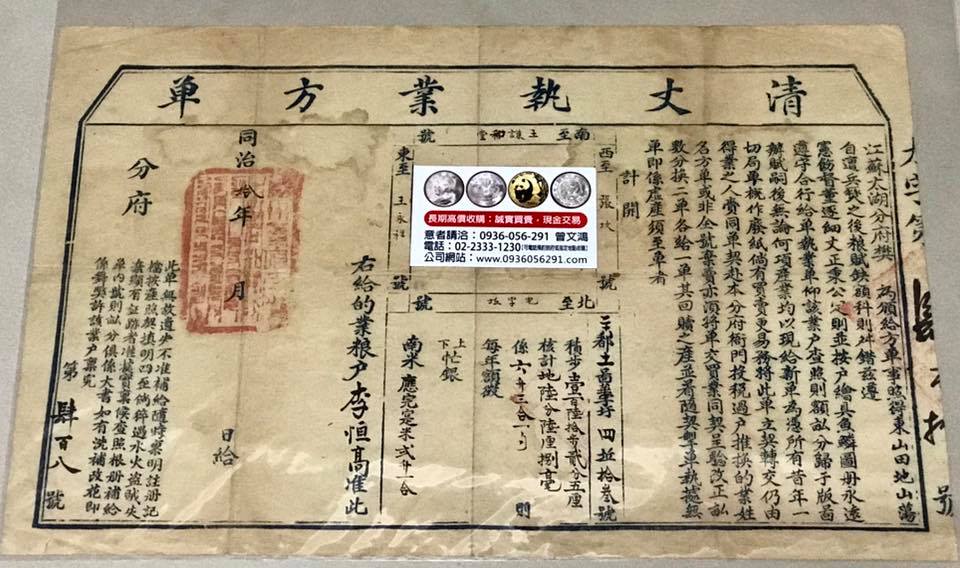 清丈執業方單
江蘇太湖分府樊 為頒給方單事照得東山田地山蕩
自遭兵燹之後粮賦缺額科則舛錯茲遵
憲飭督董逐細丈正東公定則並按戶繪具魚鱗圖册永遠
遵守合行給單執業單仰該業戶查照則額畝分歸子版圖
辦賦嗣後無論何項產業均以現給新單為憑所有昔年一
切局單概作廢紙倘有買賣更易務將此單立契轉交仍由
得業之人賚同單契赴本分府衙門投稅過戶推換的業姓
名方單或非全號棄賣亦須將單交買業同契呈驗改正畝
數分換二單各給一單其回贖之產並著隨契掣單執據無
單即係虛產須至單者
計開
西至 張
南至 王謙和堂 號
東至 王永祉 號
北至 號
三都土啚 字圩 四近拾叁號
積步壹百陸拾貳分五厘
核計地陸分陸厘捌毫
係 六升三合一勺 則
每年額徵
上下忙銀
南米 應完定米弍升一合
右給的業粮戶李恒高准此
同治拾年 月 日給
分府
此單與故遺失不准補給隨時稟明註册記
檔按產照契填明四至倘猝遇水火盜賊失
單內號則畝分俱係大書如有洗補改花即
係舞獘許該業戶稟究
第肆百八號
長期高價收購：誠實買賣，現金交易
意者請洽：0936-056-291 曾文鴻
電話：02-2333-1230
公司網站：www.0936056291.com